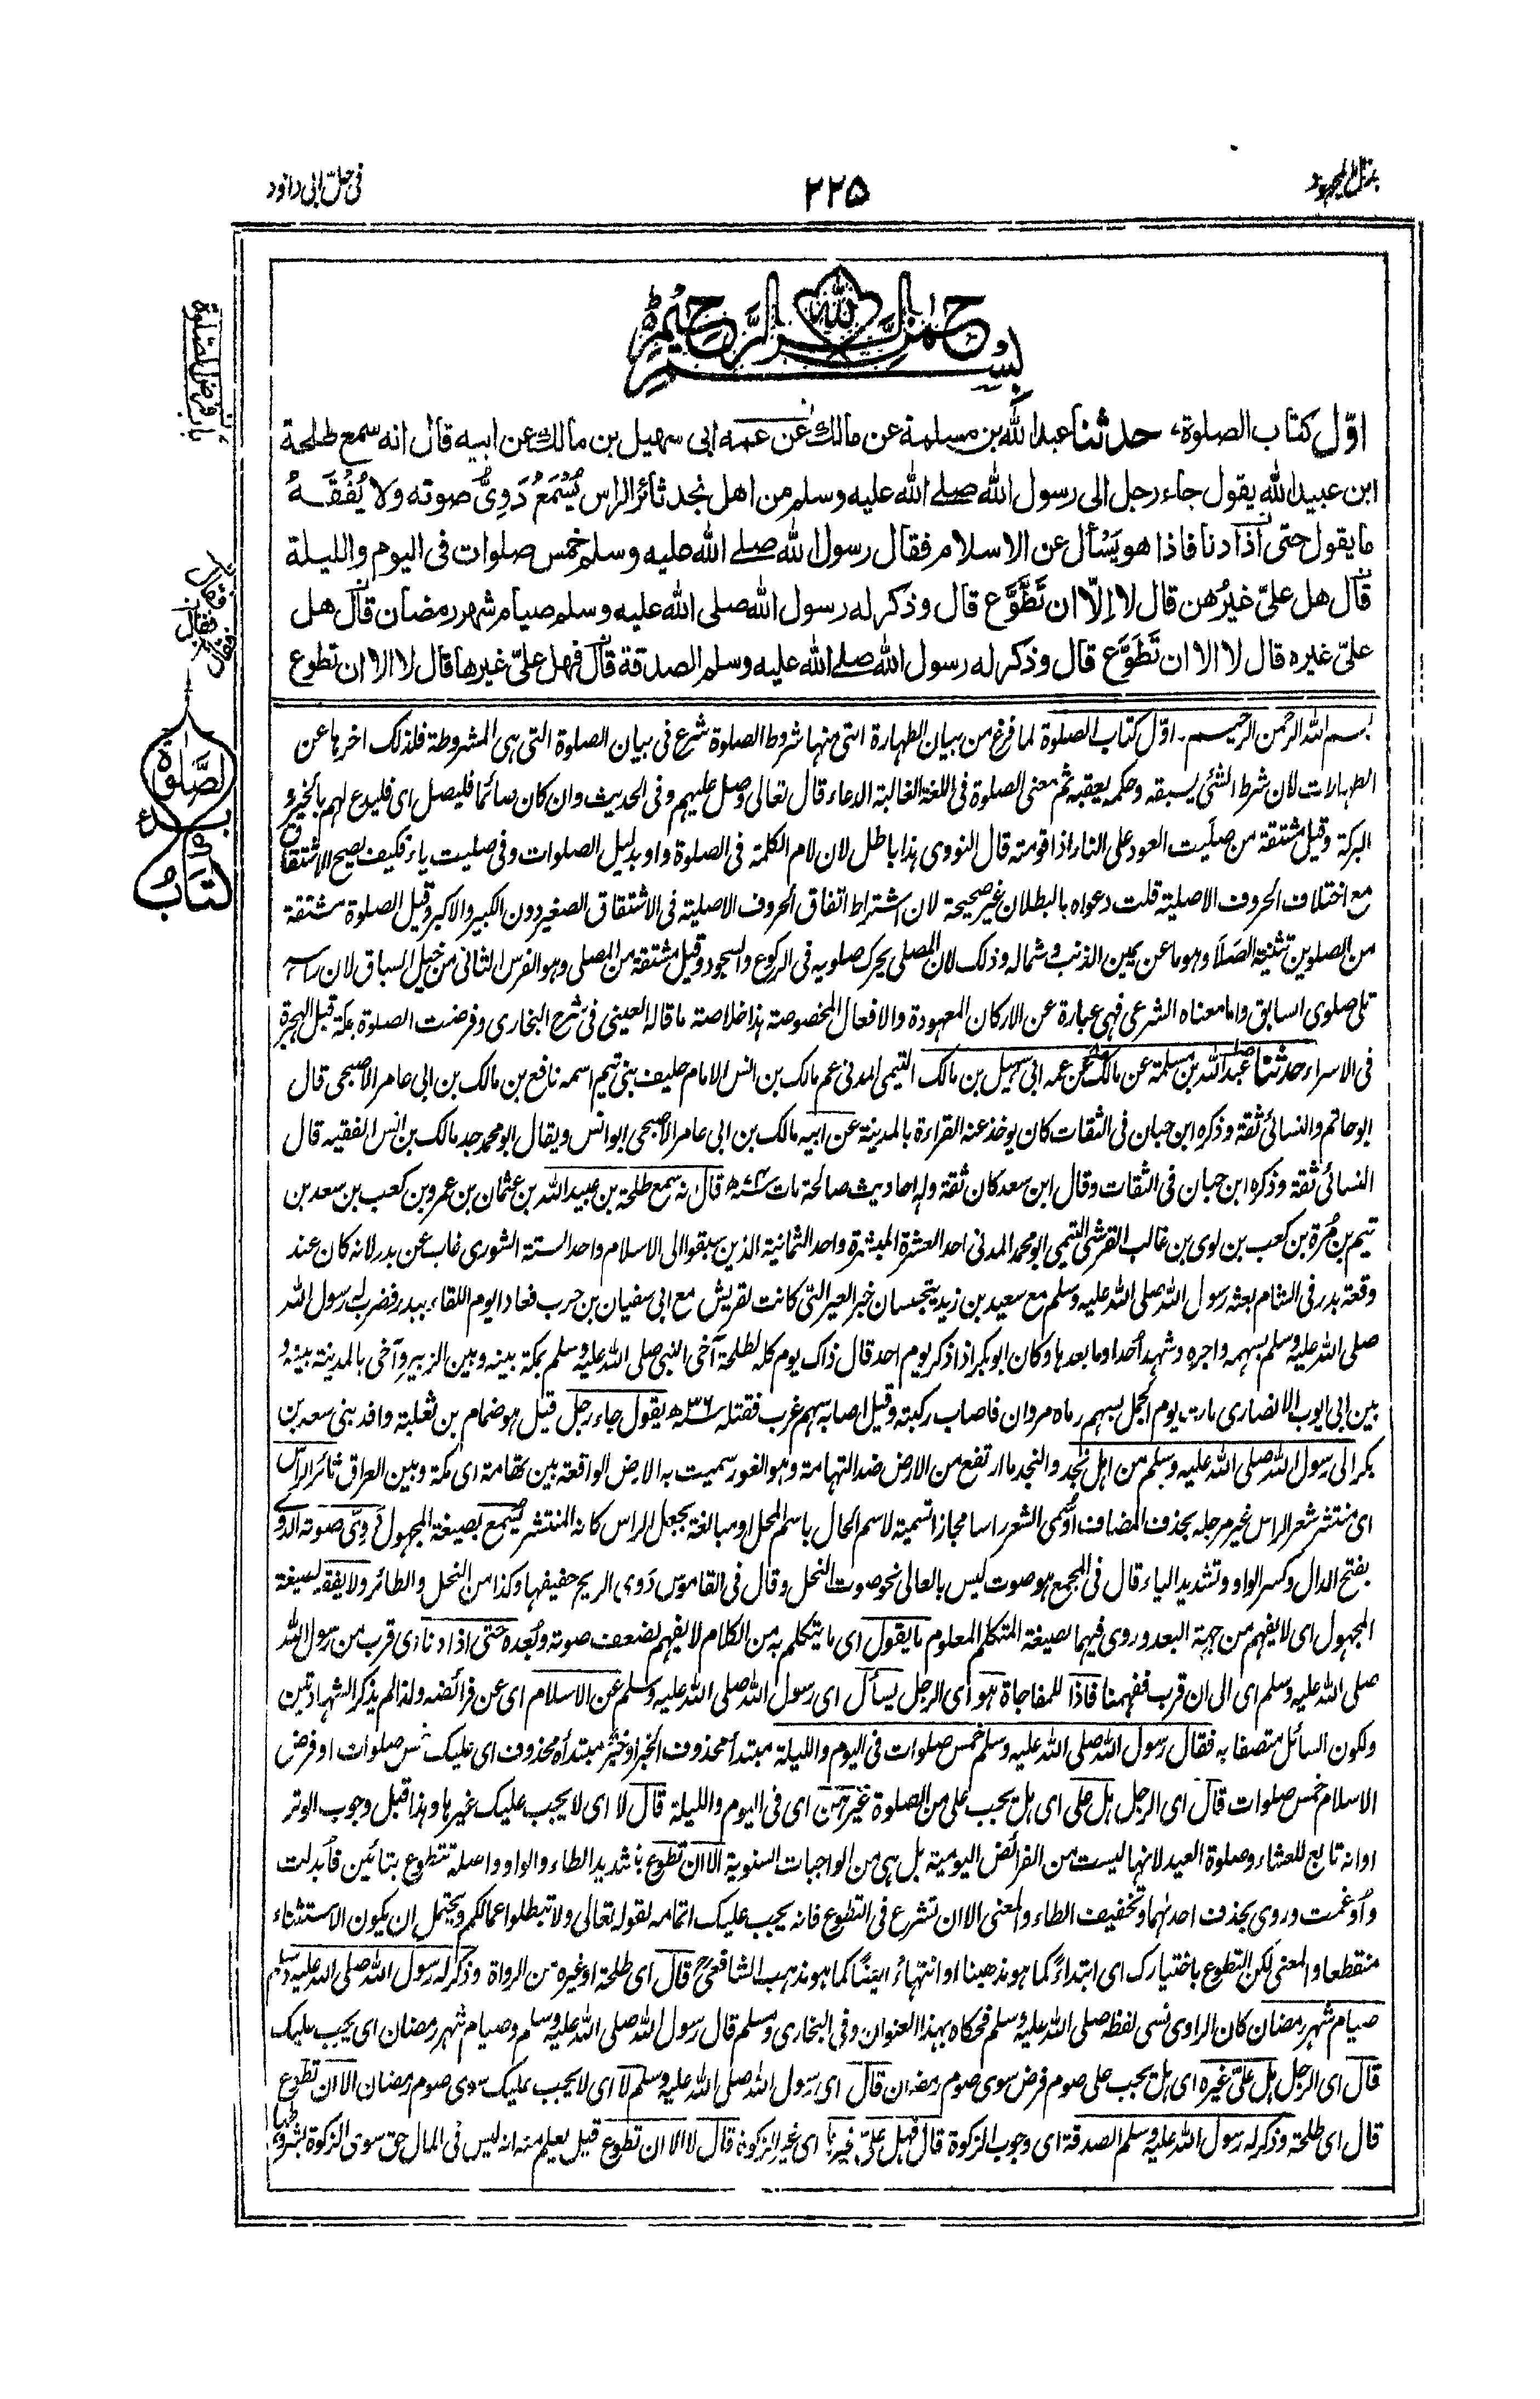 بذل المجهود
٢٢٥
في حل ابي داود
بسم الله الرحمن الرحيم
اوّل كتاب الصلوة، حدثنا عبد الله بن مسلمة عن مالك عن عمه ابى سهيل بن مالك عن ابيه قال انه سمع طلحة
ابن عبيد الله يقول جاء رجل الى رسول الله صلى الله عليه وسلم من اهل نجد ثائر الراس يُسْمَعُ دَوِىُّ صوته ولا يُفْقَهُ
ما يقول حتى اذا دنا فاذا هو يَسْأل عن الاسلام فقال رسول الله صلى الله عليه وسلم خمس صلوات فى اليوم والليلة
قال هل علىّ غيرُهن قال لا اِلّا ان تَطَّوَّع قال وذكر له رسول الله صلى الله عليه وسلم صيام شهر رمضان قال هل
علىّ غيره قال لا الا ان تَطَوَّع قال وذكر له رسول الله صلى الله عليه وسلم الصدقة قال فهل علىّ غيرها قال لا الا ان تطوع
بسم الله الرحمن الرحيم۔ اوّل كتاب الصلوة لما فرغ من بيان الطهارة التى منها شروط الصلوة شرع فى بيان الصلوة التى هى المشروطة فلذلك اخرها عن
الطهارات لان شرط الشئ يسبقه وحكمه يعقبه ثم معنى الصلوة فى اللغة الغالبة الدعاء قال تعالى وصل عليهم وفى الحديث وان كان صائما فليصل اى فليدع لهم بالخير و
البركة وقيل مشتقة من صليت العود على النار اذا قومته قال النووى هذا باطل لان لام الكلمة فى الصلوة واو بدليل الصلوات وفى صليت ياء فكيف يصح الاشتقاق
مع اختلاف الحروف الاصلية قلت دعواه بالبطلان غير صحيحة لان اشتراط اتفاق الحروف الاصلية فى الاشتقاق الصغير دون الكبير والاكبر وقيل الصلوة مشتقة
من الصلوين تثنية الصَلَا وهو ما عن يمين الذنب وشماله وذلك لان المصلى يحرك صلويه فى الركوع والسجود وقيل مشتقة من المصلى وهو الفرس الثانى من خيل السباق لان راسه
تلى صلوى السابق واما معناه الشرعى فهى عبارة عن الاركان المعهودة والافعال المخصوصة هذا خلاصة ما قاله العينى فى شرح البخارى وفرضت الصلوة بمكة قبل الهجرة
فى الاسراء حدثنا عبد الله بن مسلمة عن مالك عن عمه ابى سهيل بن مالك التيمى المدنى عم مالك بن انس الامام حليف بنى تيم اسمه نافع بن مالك بن ابى عامر الاصبحى قال
ابو حاتم والنسائى ثقة وذكره ابن حبان فى الثقات كان يوخذ عنه القراءة بالمدينة عن ابيه مالك بن ابى عامر الاصبحى ابو انس ويقال ابو محمد جد مالك بن انس الفقيه قال
النسائى ثقة وذكره ابن حبان فى الثقات وقال ابن سعد كان ثقة وله احاديث صالحة مات قال انه سمع طلحة بن عبيد الله بن عثمان بن عمرو بن كعب بن سعد بن
تيم بن مُرة بن كعب بن لوى بن غالب القرشى التيمى ابو محمد المدنى احد العشرة المبشرة واحد الثمانية الذين سبقوا الى الاسلام واحد الستة الشورى غاب عن بدر لانه كان عند
وقعة بدر فى الشام بعثه رسول الله صلى الله عليه وسلم مع سعيد بن زيد يتجسسان خبر العير التى كانت لقريش مع ابى سفيان بن حرب فعادا يوم اللقاء ببدر فضرب له رسول الله
صلى الله عليه وسلم بسهمه واجره وشهد اُحدا وما بعدها وكان ابو بكر اذا ذكر يوم احد قال ذاك يوم كله لطلحة آخى النبى صلى الله عليه وسلم بمكة بينه وبين الزبير وآخى بالمدينة بينه و
بين ابى ايوب الانصارى مات يوم الجمل بسهم رماه مروان فاصاب ركبته وقيل اصابه سهم غرب فقتله ٣٦ﻫ يقول جاء رجل قيل هو ضمام بن ثعلبة وافد بنى سعد بن
بكر الى رسول الله صلى الله عليه وسلم من اهل نجد والنجد ما ارتفع من الارض ضد التهامة وهو الغور سميت به الارض الواقعة بين تهامة اى مكة وبين العراق ثائر الراس
اى منتشر شعر الراس غير مرجله بحذف المضاف او سمى الشعر راسا مجازا تسمية لاسم الحال باسم المحل او مبالغة بجعل الراس كانه المنتشر يُسمع بصيغة المجهول دَوِىُّ صوته الدوى
بفتح الدال وكسر الواو وتشديد الياء قال فى المجمع هو صوت ليس بالعالى نحو صوت النحل وقال فى القاموس دَوى الريح حفيفها وكذا من النحل والطائر ولا يفقه بصيغة
المجهول اى لا يفهم من جهة البعد وروى فيهما بصيغة المتكلم المعلوم ما يقول اى ما يتكلم به من الكلام لا يفهم لضعف صوته وبُعده حتى اذا دنا اى قرب من رسول الله
صلى الله عليه وسلم اى الى ان قرب ففهمنا فاذا للمفاجاة هو اى الرجل يسأل اى رسول الله صلى الله عليه وسلم عن الاسلام اى عن فرائضه ولذا لم يذكر الشهادتين
ولكون السائل متصفا به فقال رسول الله صلى الله عليه وسلم خمس صلوات فى اليوم والليلة مبتدأ محذوف الخبر او خبر مبتدأه محذوف اى عليك خمس صلوات او فرض
الاسلام خمس صلوات قال اى الرجل هل على اى هل يجب على من الصلوة غيرهن اى فى اليوم والليلة قال لا اى لا يجب عليك غيرها وهذا قبل وجوب الوتر
او انه تابع للعشاء وصلوة العيد لانها ليست من الفرائض اليومية بل هى من الواجبات السنوية الا ان تطوع بتشديد الطاء والواو واصله تتطوع بتائين فأبدلت
وأدغمت وروى بحذف احدهما وتخفيف الطاء والمعنى الا ان تشرع فى التطوع فانه يجب عليك اتمامه لقوله تعالى ولا تبطلوا اعمالكم ويحتمل ان يكون الاستثناء
منقطعا والمعنى لكن التطوع باختيارك اى ابتداءً كما هو مذهبنا او انتهاءً ايضًا كما هو مذهب الشافعىؒ قال اى طلحة او غيره من الرواة وذكر له رسول الله صلى الله عليه وسلم
صيام شهر رمضان كان الراوى نسى لفظه صلى الله عليه وسلم فحكاه بهذا العنوان وفى البخارى ومسلم قال رسول الله صلى الله عليه وسلم وصيام شهر رمضان اى يجب عليك
قال اى الرجل هل علىّ غيره اى هل يجب على صوم فرض سوى صوم رمضان قال اى رسول الله صلى الله عليه وسلم لا اى لا يجب عليك سوى صوم رمضان الا ان تطوع
قال اى طلحة وذكر له رسول الله صلى الله عليه وسلم الصدقة اى وجوب الزكوة قال فهل علىّ غيرها اى غير الزكوة قال لا الا ان تطوع قيل يعلم منه انه ليس فى المال حق سوى الزكوة بشروطها
باب فرض الصلوة
فقال
فقال
فقال
كتاب الصَّلوة